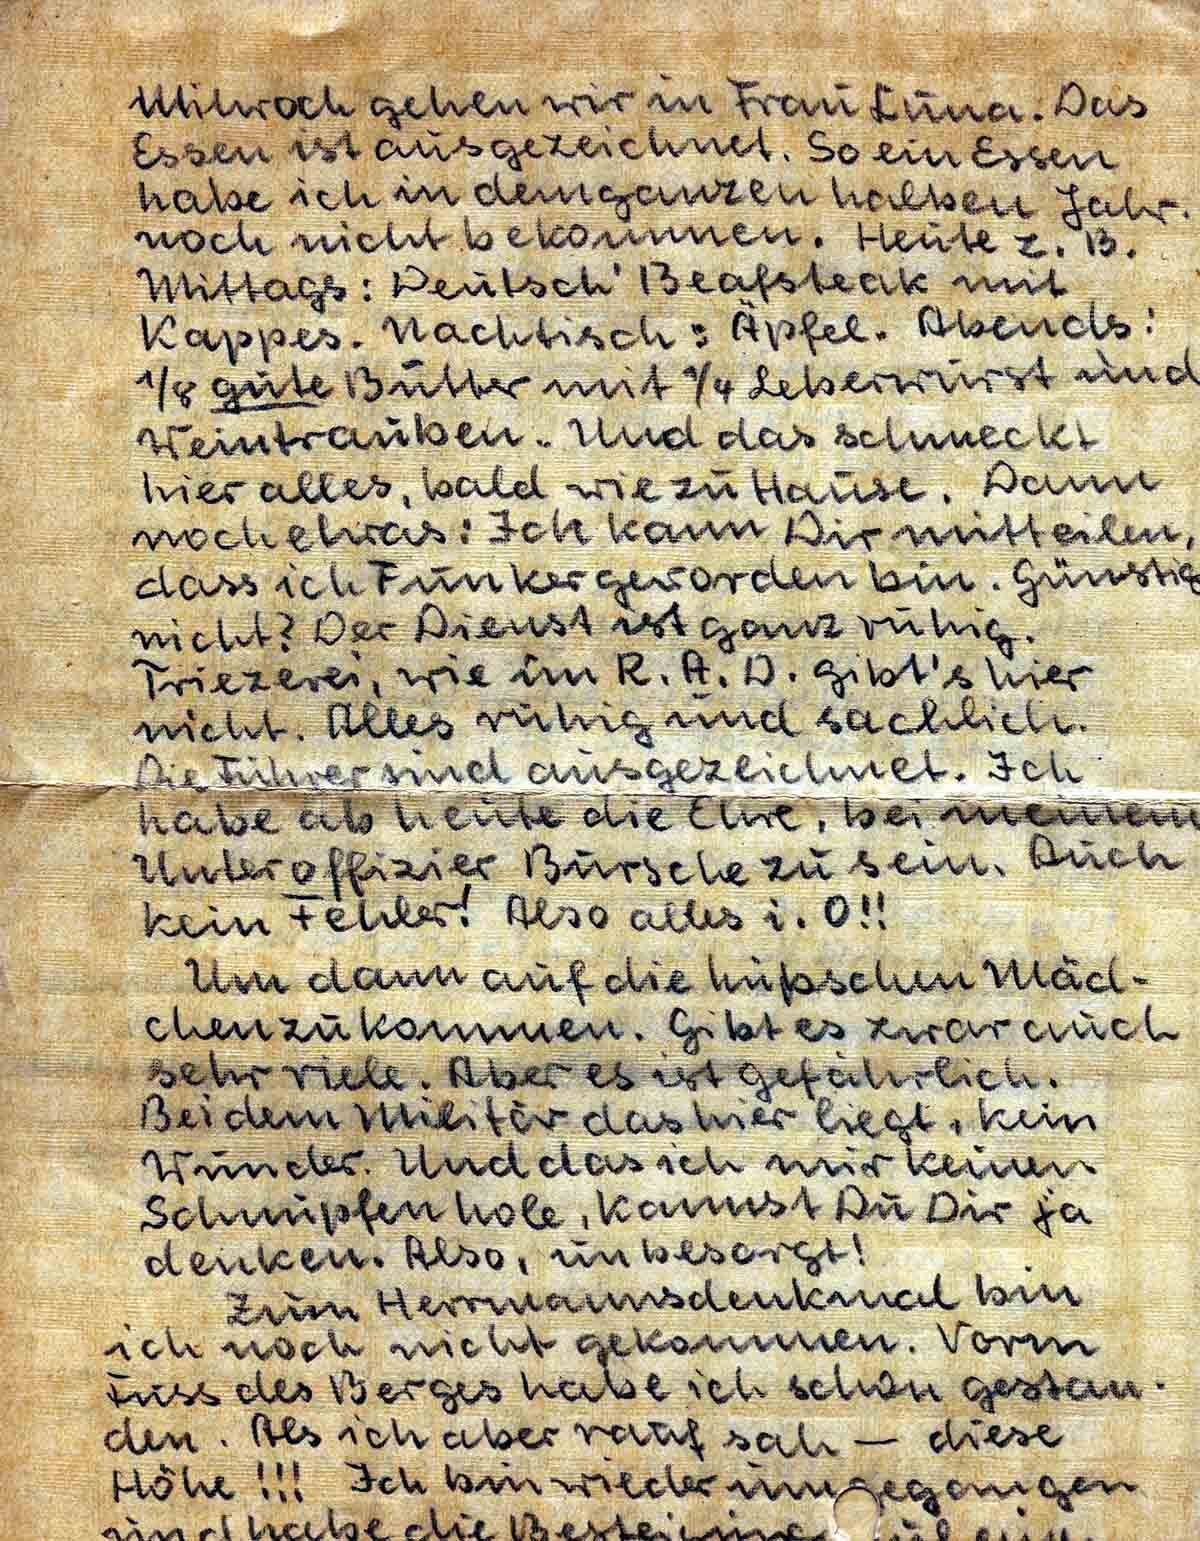 Mittwoch gehen wir in Frau Luna. Das
Essen ist ausgezeichnet. So ein Essen
habe ich in dem ganzen halben Jahr.
noch nicht bekommen. Heute z. B.
Mittags: Deutsch' Beafsteak mit
Kappes. Nachtisch: Äpfel. Abends:
1/8 gute Butter mit 1/4 Leberwurst und
Weintrauben. Und das schmeckt
hier alles, bald wie zu Hause. Dann
noch etwas: Ich kann Dir mitteilen,
dass ich Funker geworden bin. Günstig
nicht? Der Dienst ist ganz ruhig.
Triezerei, wie im R. A. D. gibt's hier
nicht. Alles ruhig und sachlich.
Die Führer sind ausgezeichnet. Ich
habe ab heute die Ehre, bei meinem
Unteroffizier Bursche zu sein. Auch
kein Fehler! Also alles i. O!!
Um dann auf die hüpschen Mäd-
chen zu kommen. Gibt es zwar auch
sehr viele. Aber es ist gefährlich.
Bei dem Militär das hier liegt, kein
Wunder. Und das ich mir keinen
Schnupfen hole, kannst Du Dir ja
denken. Also, unbesorgt!
Zum Herrmannsdenkmal bin
ich noch nicht gekommen. Vorm
Fuss des Berges habe ich schon gestan-
den. Als ich aber rauf sah — diese
Höhe!!! Ich bin wieder umgegangen
und habe die Besteigung